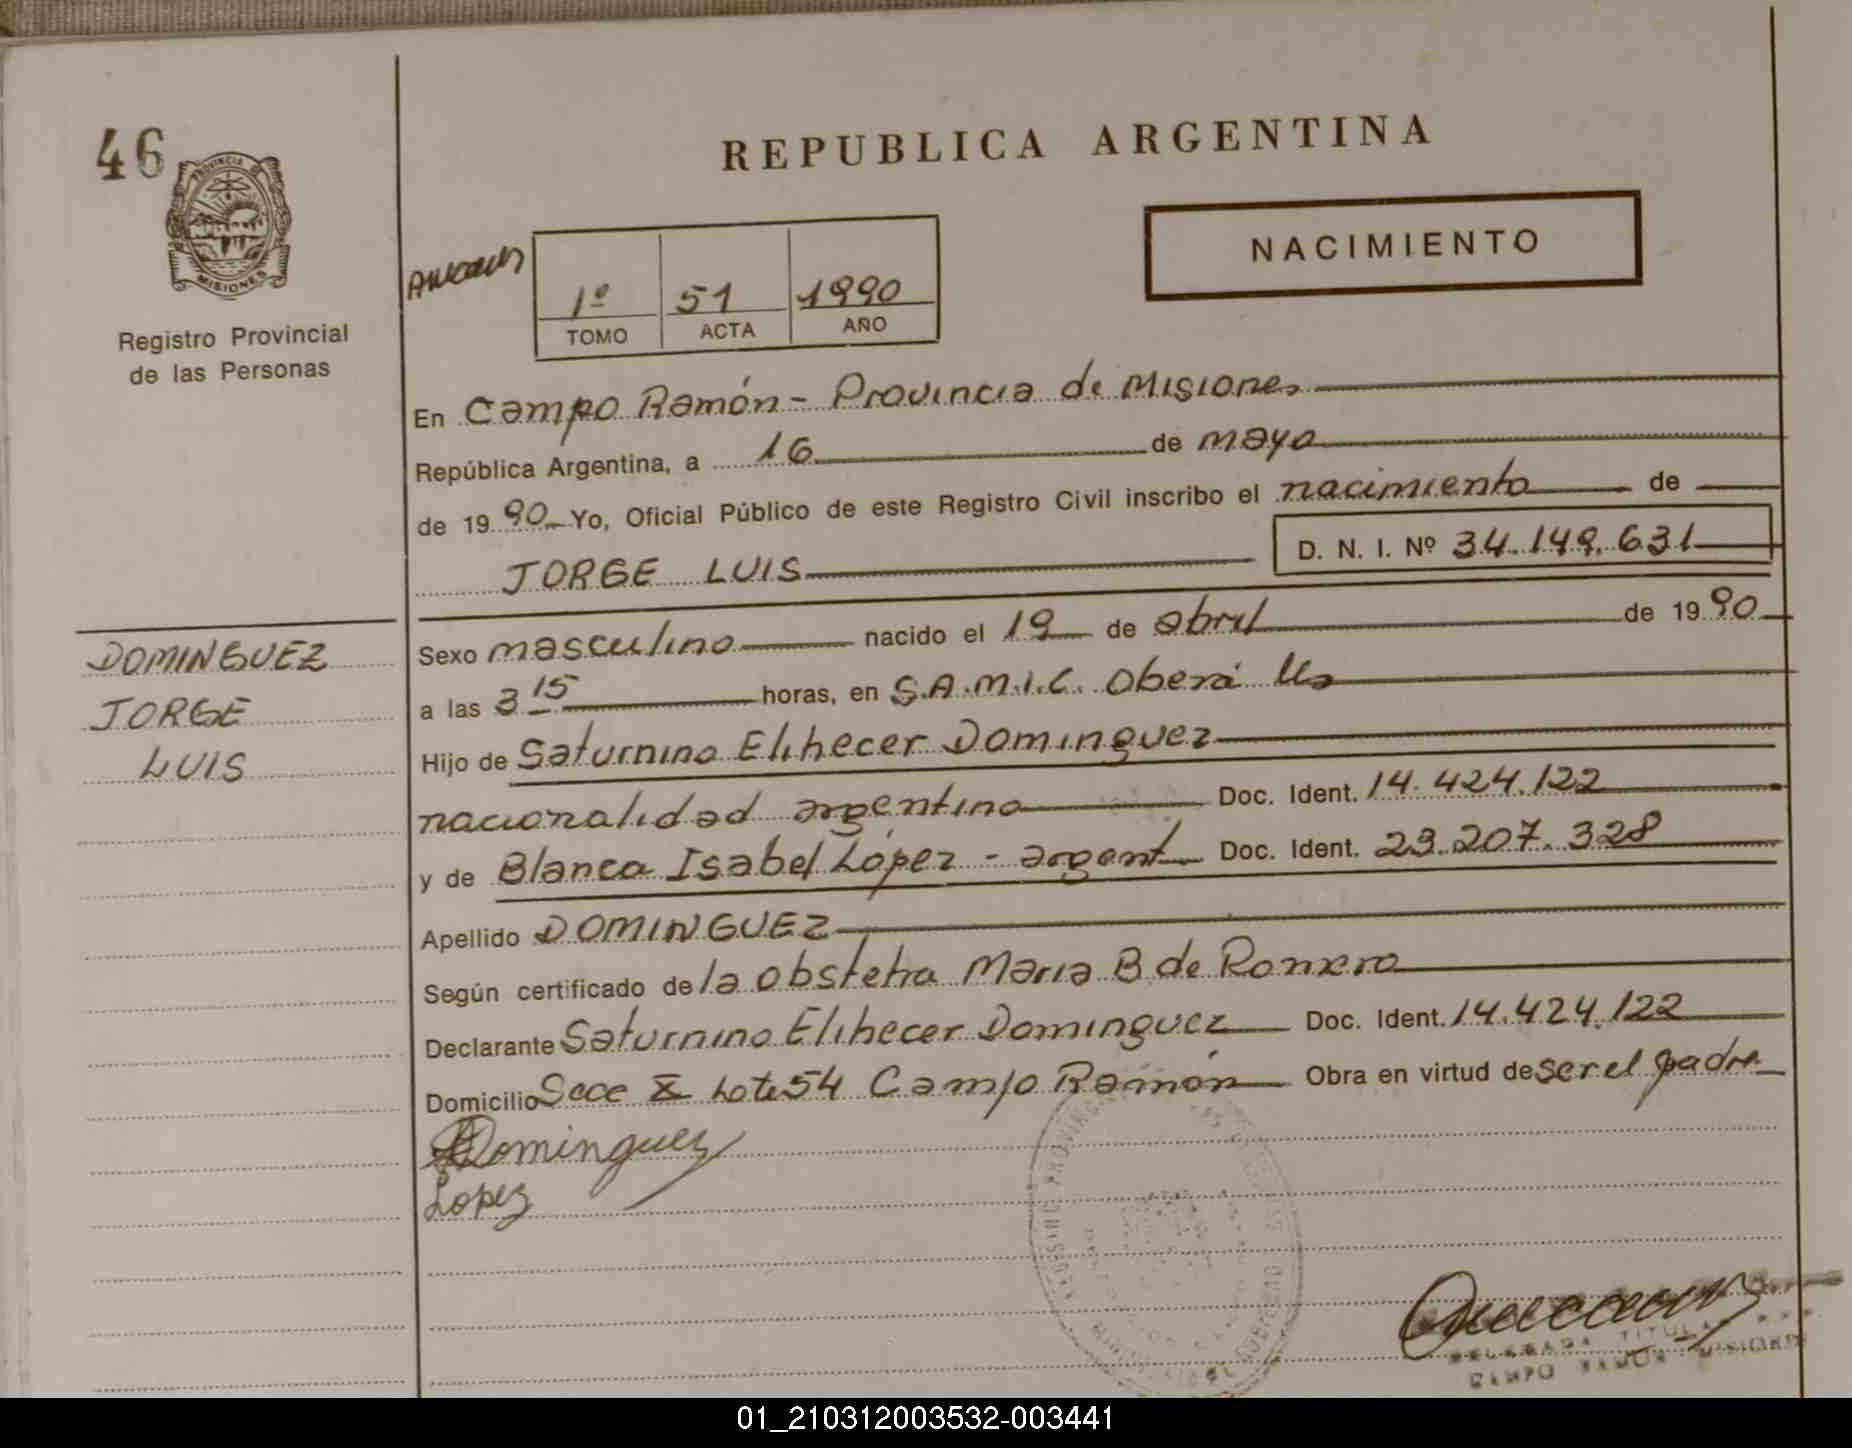 46
PROVINCIA DE
MISIONES
Registro Provincial
de las Personas
REPUBLICA ARGENTINA
NACIMIENTO
1º 51 1990
TOMO ACTA AÑO
En Campo Ramón - Provincia de Misiones
República Argentina, a 16 de mayo
de 1990 Yo, Oficial Público de este Registro Civil inscribo el nacimiento de
JORGE LUIS D. N. I. Nº 34.149.631
DOMINGUEZ
JORGE
LUIS
Sexo masculino nacido el 19 de abril de 1990
a las 3 15 horas, en S.A.M.I.C. Oberá
Hijo de Saturnino Elihecer Dominguez
nacionalidad argentino Doc. Ident. 14.424.122
y de Blanca Isabel López - argent Doc. Ident. 23.207.328
Apellido DOMINGUEZ
Según certificado de la obstetra Maria B de Romero
Declarante Saturnino Elihecer Dominguez Doc. Ident. 14.424.122
Domicilio Secc X Lote 54 Campo Ramón Obra en virtud de ser el padre
Dominguez
Lopez
DELEGADA TITULAR
CAMPO RAMON MISIONES
01_210312003532-003441